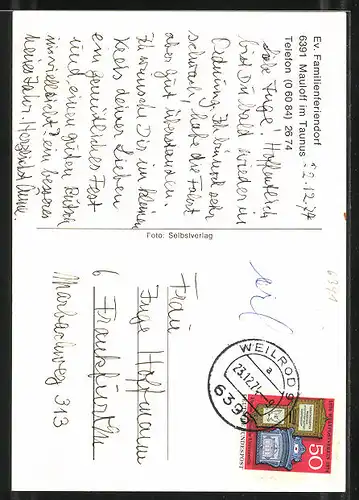 Ev. Familienferiendorf
6391 Mauloff im Taunus
Telefon (0 60 84) 26 74
22.12.74
Liebe Inge! Hoffentlich
bist Du bald wieder in
Ordnung. Ich bin noch sehr
schwach, habe die Fahrt
aber gut überstanden.
Ich wünsche Dir im kleinen
Kreis deiner Lieben
ein gemütliches Fest
und einen guten Rutsch
in ein besseres
neues Jahr. Herzlichst Anne.
Foto: Selbstverlag
Frau
Inge Hoffmann
6 Frankfurt/M
Marbachweg 313
6391
WEILROD 9
a
23.12.74
6395
50
BUNDESPOST